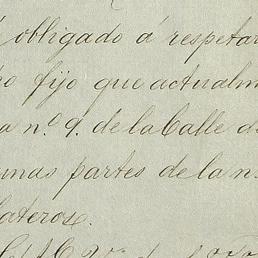 obligado á respetar
fijo que actualm
a n.º 9. de la Calle d
unas partes de la n
lateros.